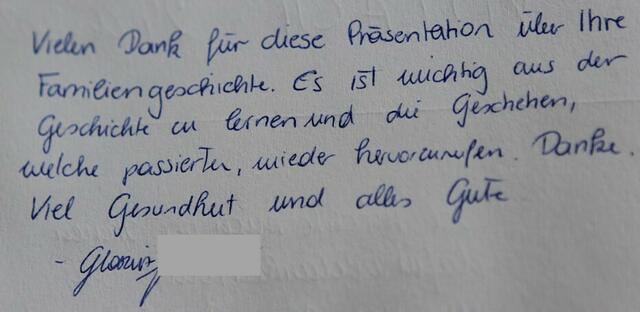 Vielen Dank für diese Präsentation über Ihre
Familiengeschichte. Es ist wichtig aus der
Geschichte zu lernen und die Geschehen,
welche passierten, wieder hervorzurufen. Danke.
Viel Gesundheit und alles Gute
-